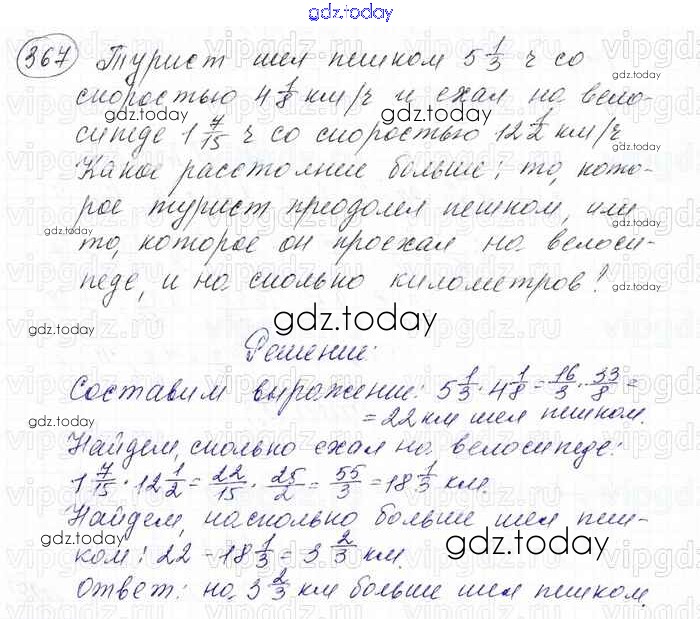 gdz.today
367 Турист шел пешком 5 1/3 ч со
скоростью 4 1/8 км/ч и ехал на вело-
сипеде 1 7/15 ч со скоростью 12 1/2 км/ч
Какое расстояние больше: то, кото-
рое турист преодолел пешком, или
то, которое он проехал на велоси-
педе, и на сколько километров?
gdz.today
Решение:
Составим выражение: 5 1/3 · 4 1/8 = 16/3 · 33/8 =
= 22 км шел пешком.
Найдем, сколько ехал на велосипеде:
1 7/15 · 12 1/2 = 22/15 · 25/2 = 55/3 = 18 1/3 км.
Найдем, насколько больше шел пеш-
ком: 22 - 18 1/3 = 3 2/3 км.
Ответ: на 3 2/3 км больше шел пешком.